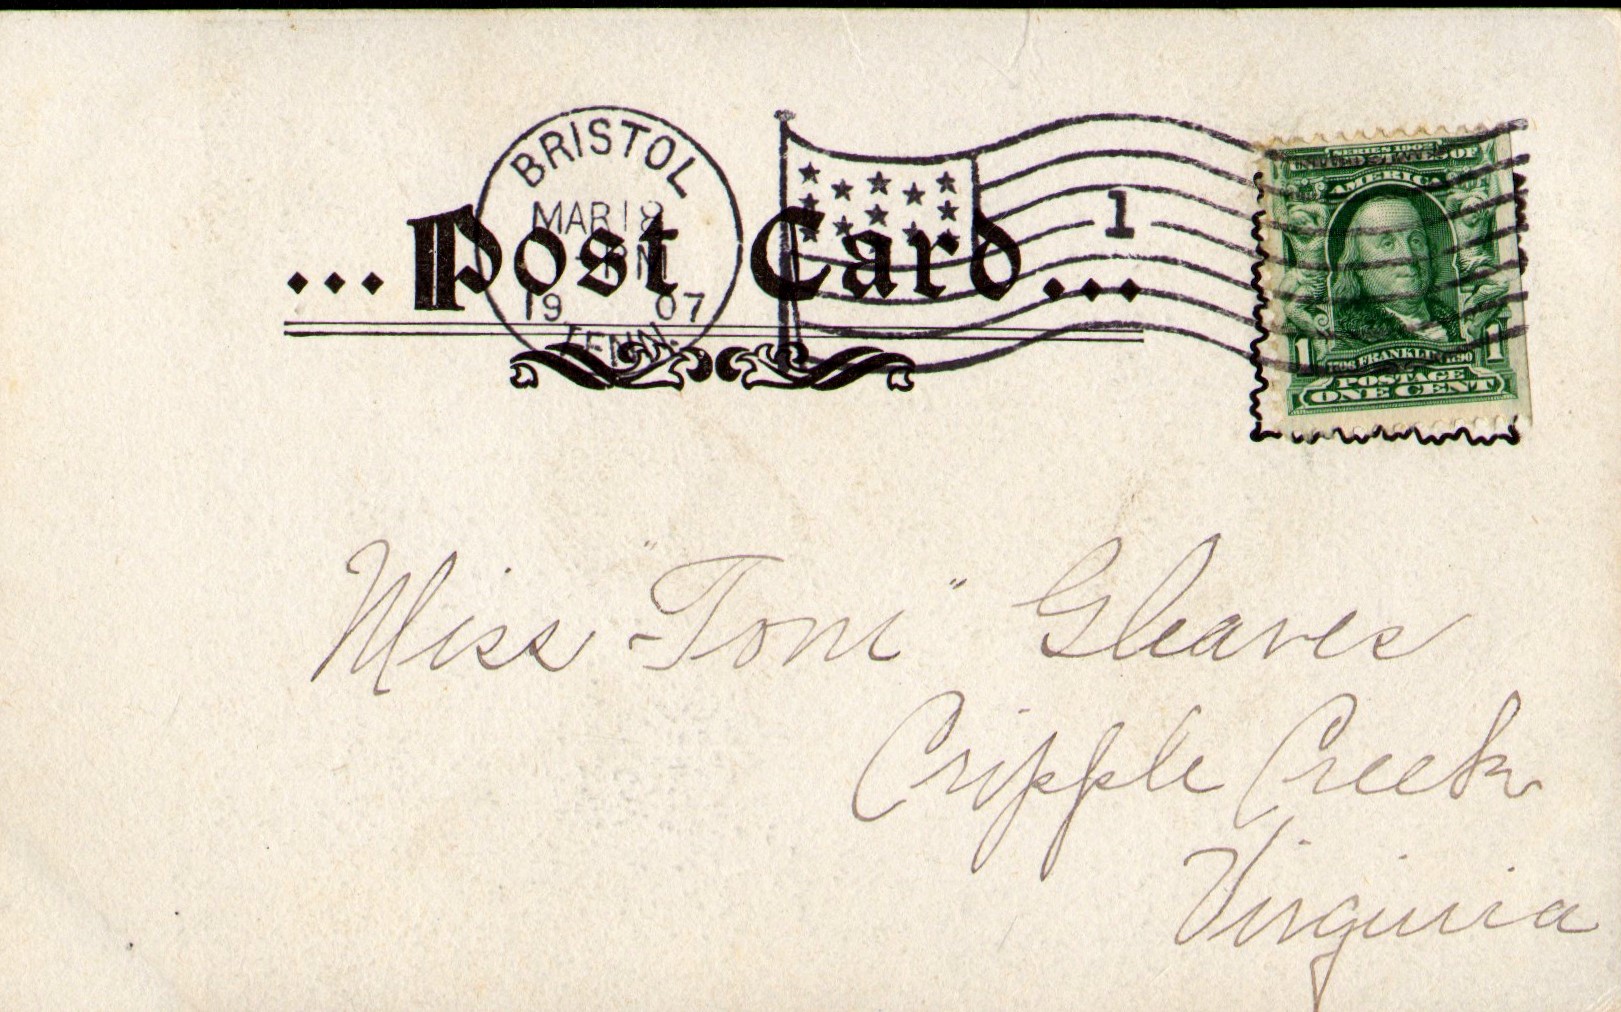 BRISTOL
MAR 18
19 07
TENN.
...Post Card...
1
SERIES 1902
UNITED STATES OF
AMERICA
1 1
1706 FRANKLIN 1790
POSTAGE
ONE CENT
Miss "Tom" Gleaves
Cripple Creek
Virginia